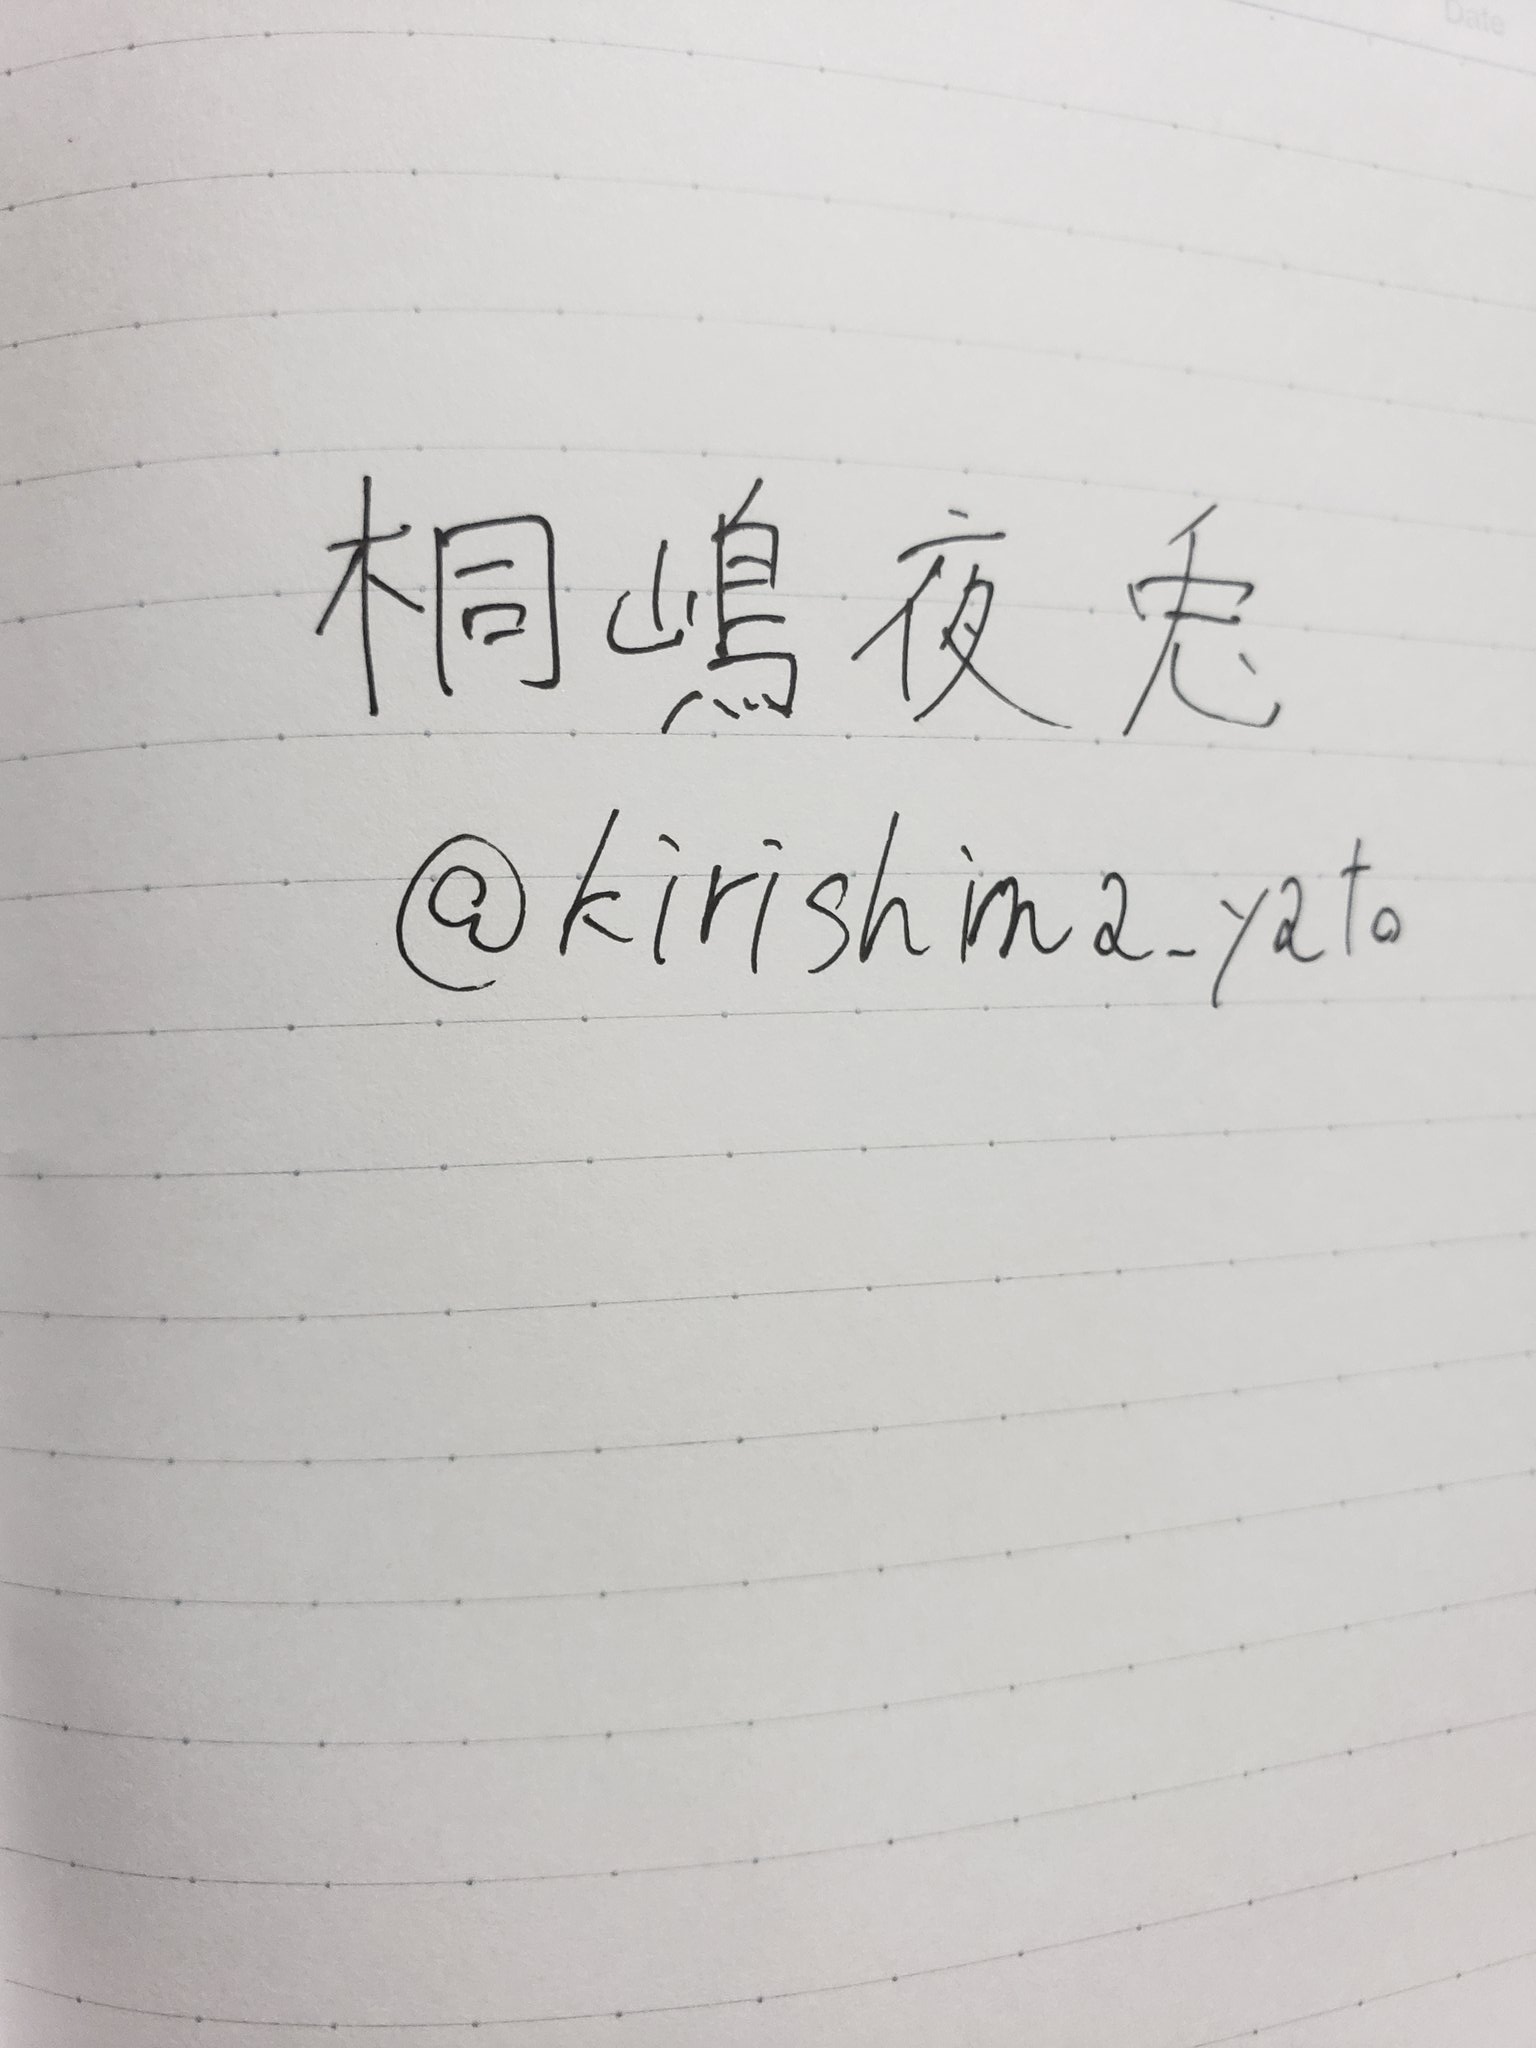 Date
桐嶋夜兎
@kirishima_yato